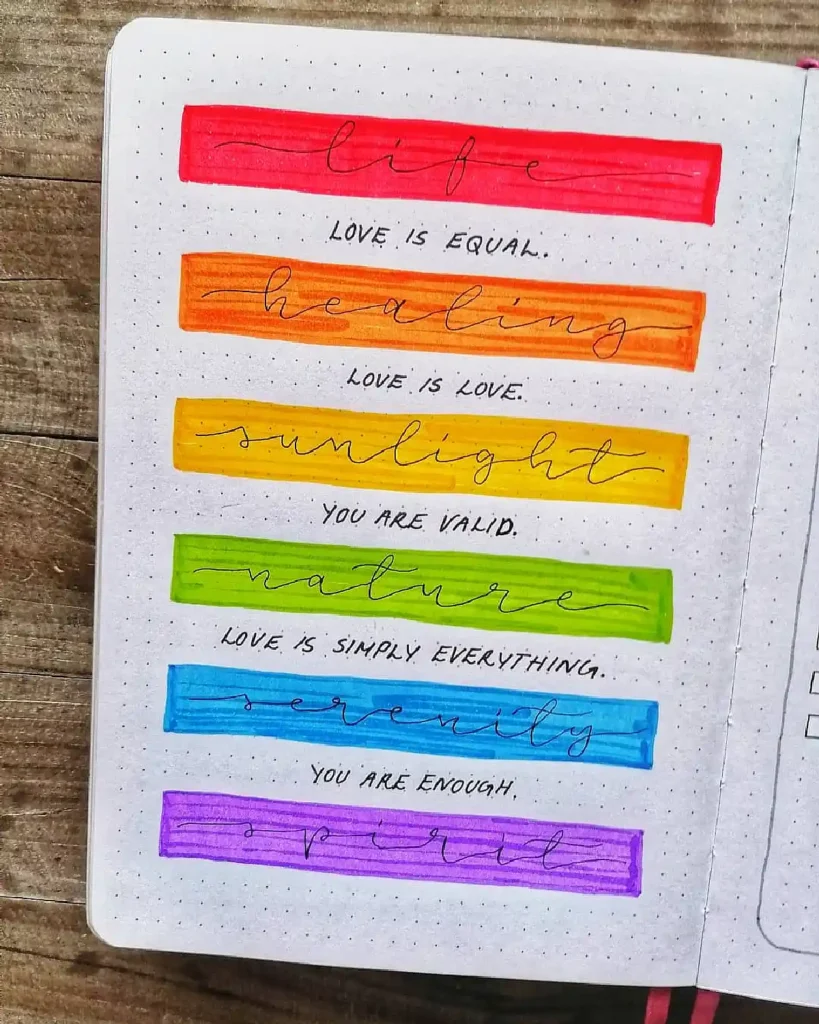 life
LOVE IS EQUAL.
healing
LOVE IS LOVE.
sunlight
YOU ARE VALID.
nature
LOVE IS SIMPLY EVERYTHING.
serenity
YOU ARE ENOUGH.
spirit